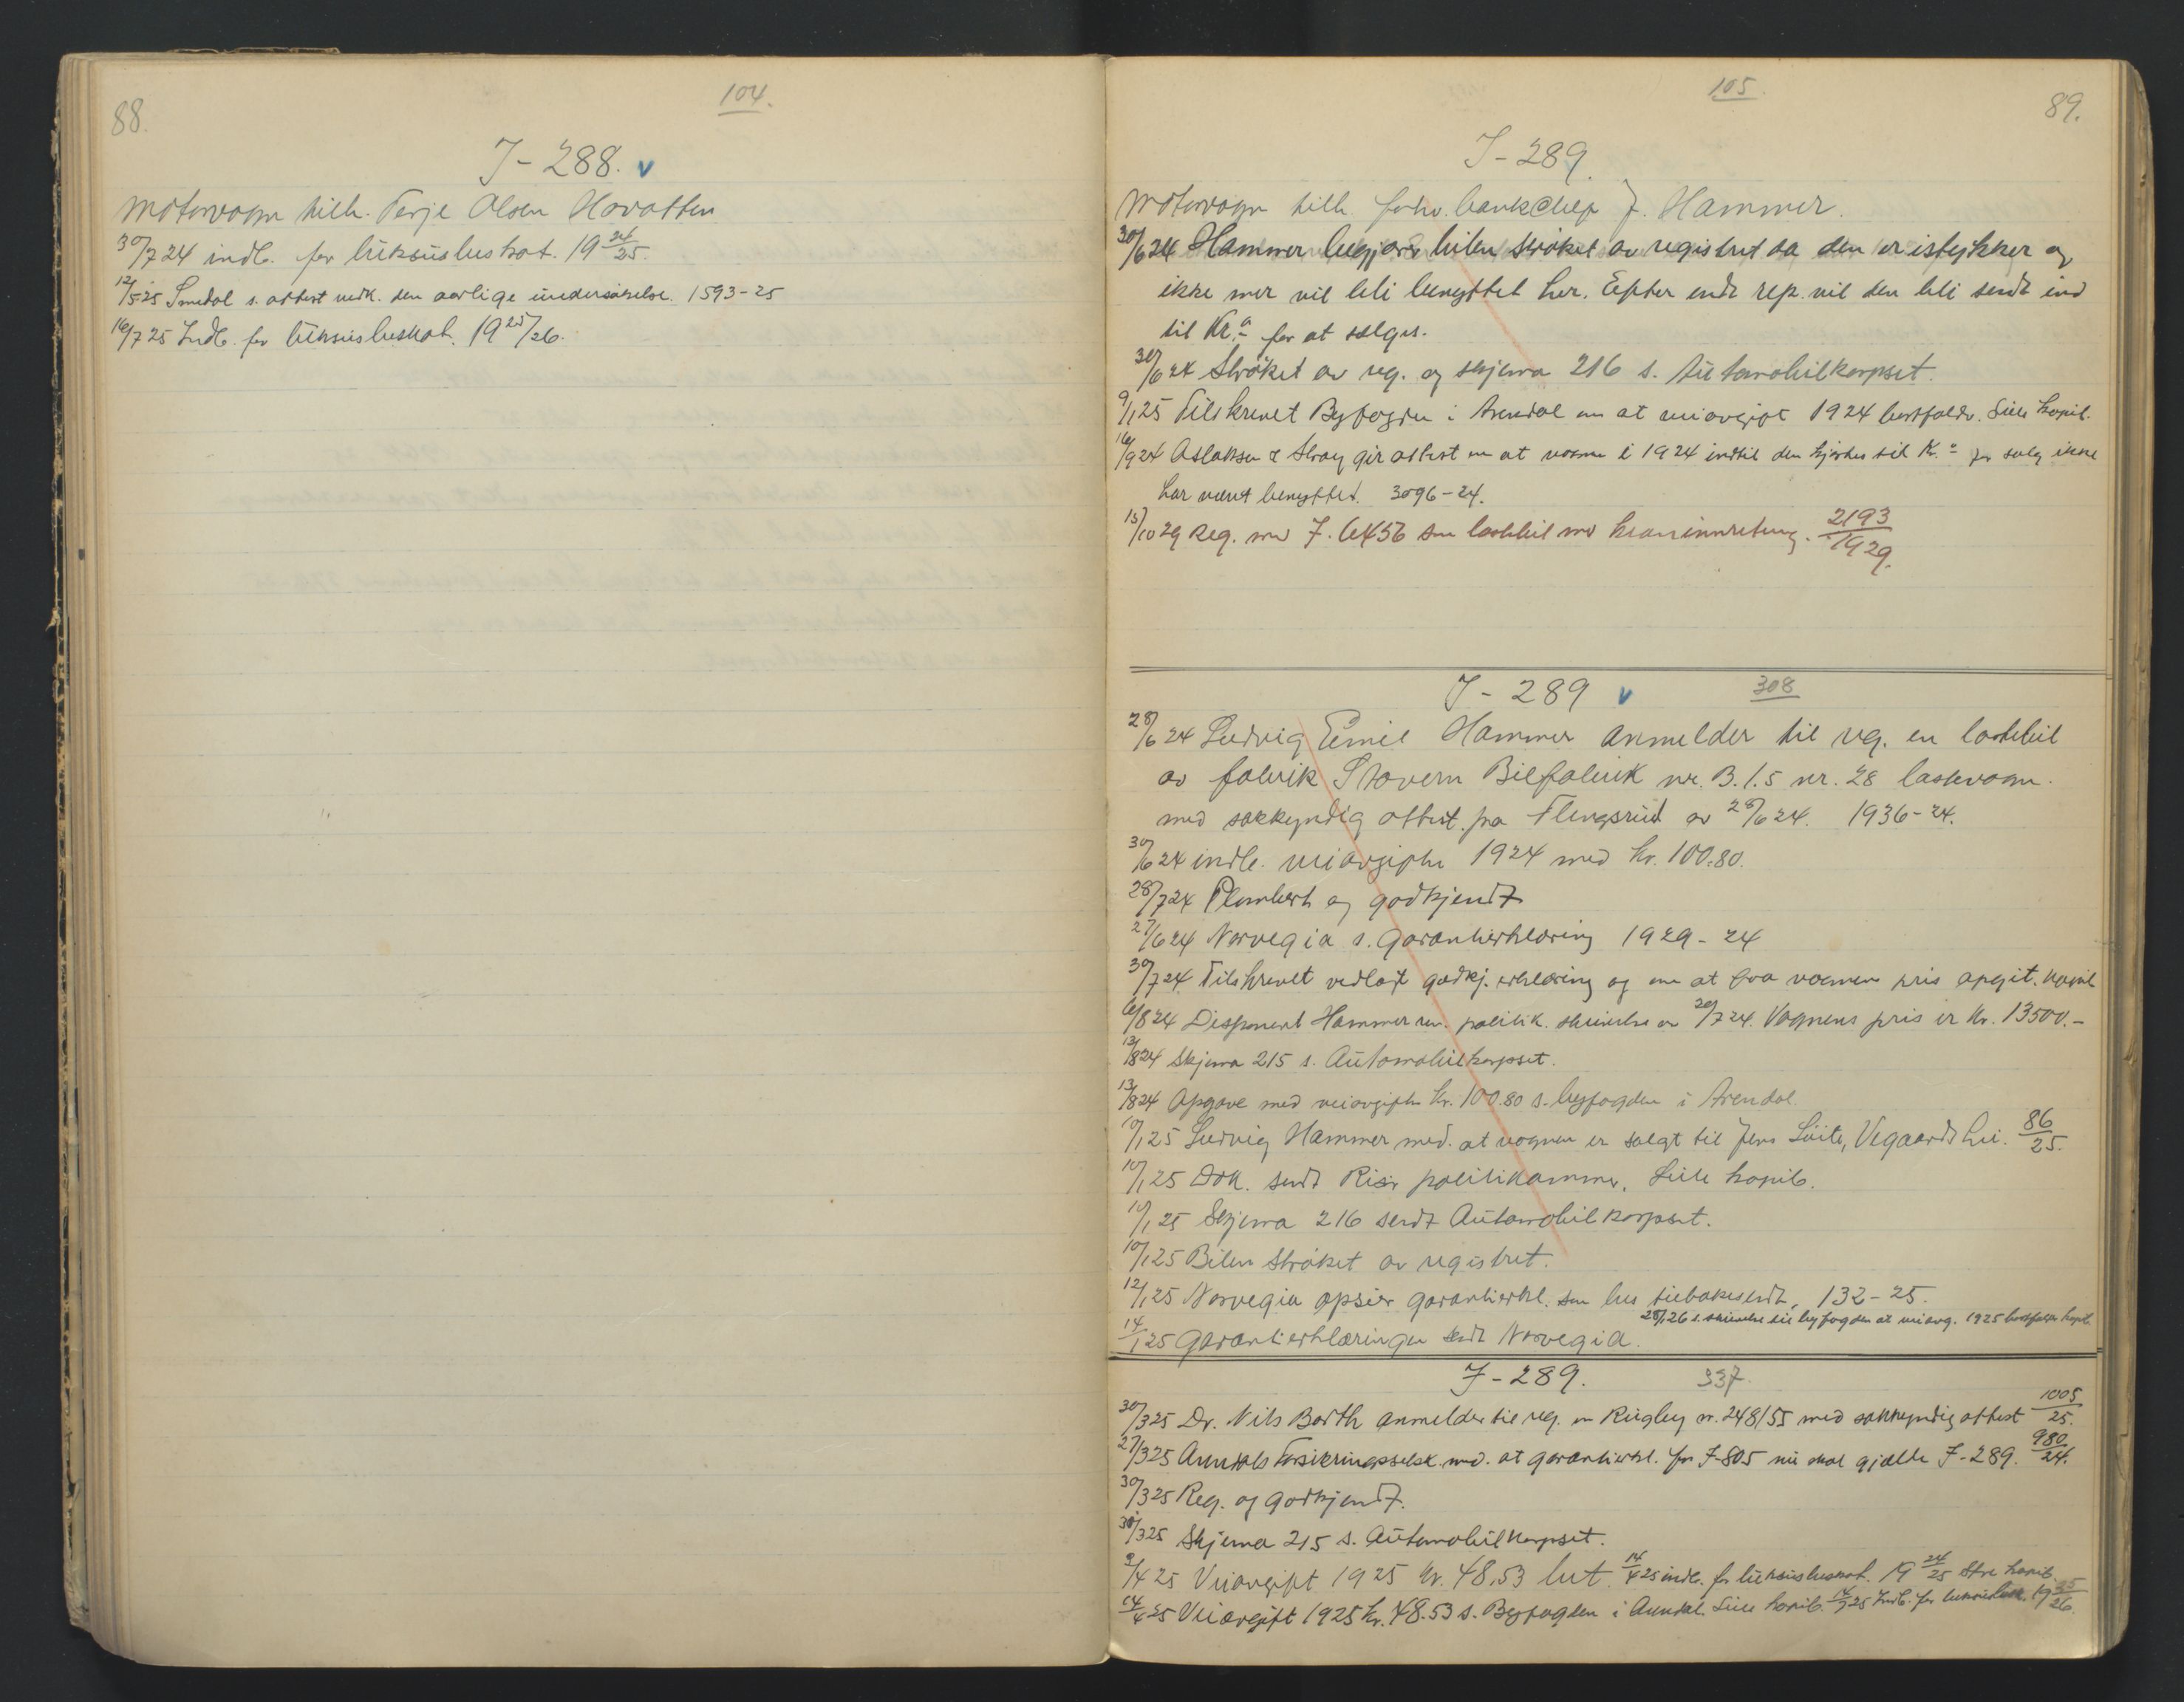 88.
104.
I-288. v
Motorvogn tilh. Terje Olsen Hovatten
30/7 24 indb. for luksusbeskat. 19 24/25.
12/5 25 Smedal s. attest vedk. den aarlige undersøkelse. 1593-25
16/7 25 Indb. for luksusbeskat. 19 25/26.
105.
89.
I-289.
Motorvogn tilh. forhv. bankchef J. Hammer.
30/6 24 Hammer begjærer bilen strøket av registret da den er istykker og
ikke mer vil bli benyttet her. Efter endt rep. vil den bli sendt ind
til Kr.a for at sælges.
30/6 24 Strøket av reg. og skjema 216 s. Automobilkorpset.
9/1 25 Tilskrevet Byfogden i Arendal om at veiavgift 1924 bortfalder. Lille kopib.
16/9 24 Aslaksen & Stray gir attest om at vognen i 1924 indtil den kjørtes til K.a for salg ikke
har været benyttet. 3096-24.
15/10 29 Reg. med I. 6456 som lastebil med kraninnretning. 2193/1929.
I-289 v 308
28/6 24 Ludvig Emil Hammer anmelder til reg. en lastebil
av fabrik Stavern Bilfabrik nr. B.1.5 nr. 28 lastevogn.
med sakkyndig attest fra Flengsrud av 28/6 24. 1936-24.
30/6 24 indb. veiavgiften 1924 med kr. 100.80.
28/7 24 Plombert og godkjendt
27/6 24 Norvegia s. garantierklæring 1929-24
30/7 24 Tilskrevet vedlagt godkj. erklæring og om at faa vognens pris opgit. kopib
6/8 24 Disponent Hammer rev. politik. skrivelse av 30/7 24. Vognens pris er Kr. 13500.-
13/8 24 Skjema 215 s. Automobilkorpset.
13/8 24 Opgave med veiavgiften kr. 100.80 s. byfogden i Arendal.
10/1 25 Ludvig Hammer med. at vognen er solgt til Jens Lüite, Vegaardshei. 86/25.
10/1 25 Dok. sendt Risør politikammer. Lille kopib.
10/1 25 Skjema 216 sendt Automobilkorpset.
10/1 25 Bilen strøket av registret.
12/1 25 Norvegia opsier garantierkl. som bes tilbakesendt, 132-25.
28/1 26 s. skrivelse til byfogden at veiavg. 1925 bortfalder kopib.
14/1 25 Garantierklæringen sendt Norvegia.
I-289. 337.
30/3 25 Dr. Nils Barth anmelder til reg. en Rugby nr. 248155 med sakkyndig attest 1005/25.
27/3 25 Arendals Forsikringsselsk. med. at garantierkl. for I-805 nu skal gjælde I-289. 980/24.
30/3 25 Reg. og godkjendt.
30/3 25 Skjema 215 s. Automobilkorpset.
9/4 25 Veiavgift 1925 kr. 48,53 bet. 14/4 25 indb. for luksusbeskat. 19 24/25 Store kopib.
14/4 25 Veiavgift 1925 kr. 48.53 s. Byfogden i Arendal. Lille kopib. 14/7 25 Indb. for luksusbesk. 19 25/26.